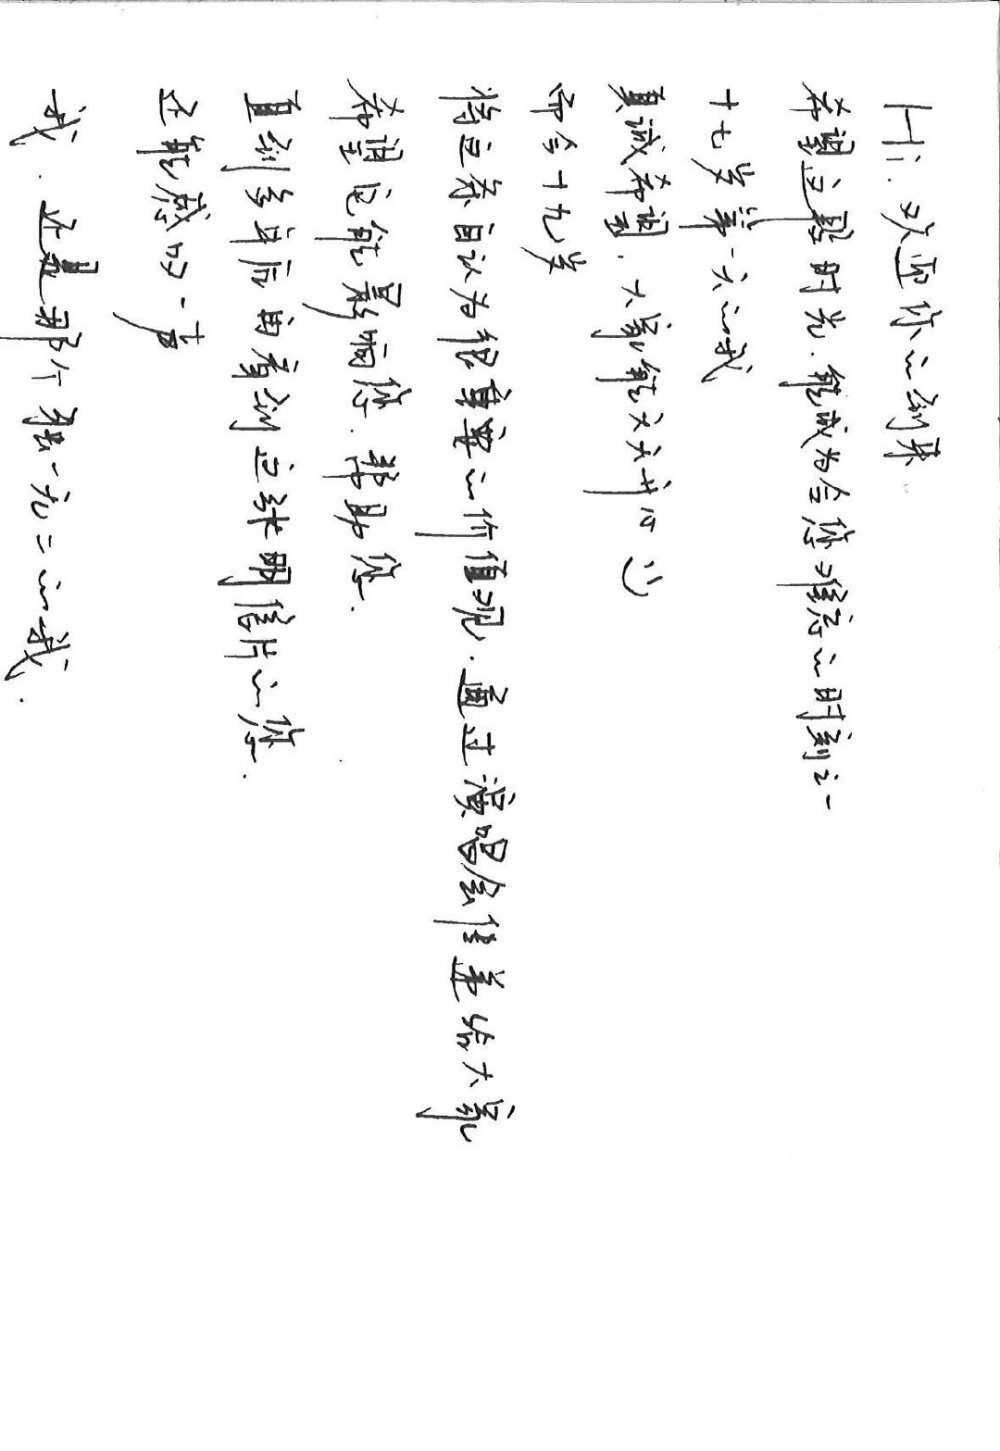 Hi. 欢迎你的到来
希望这段时光.能成为令您难忘的时刻之一
十七岁第一次的我
真诚希望.大家能天天开心 :)
而今十九岁
将这份自认为很重要的价值观.通过演唱会传递给大家
希望它能影响您.帮助您.
直到多年后再看到这张明信片的您.
还能感叹一声
我.还是那个独一无二的我.